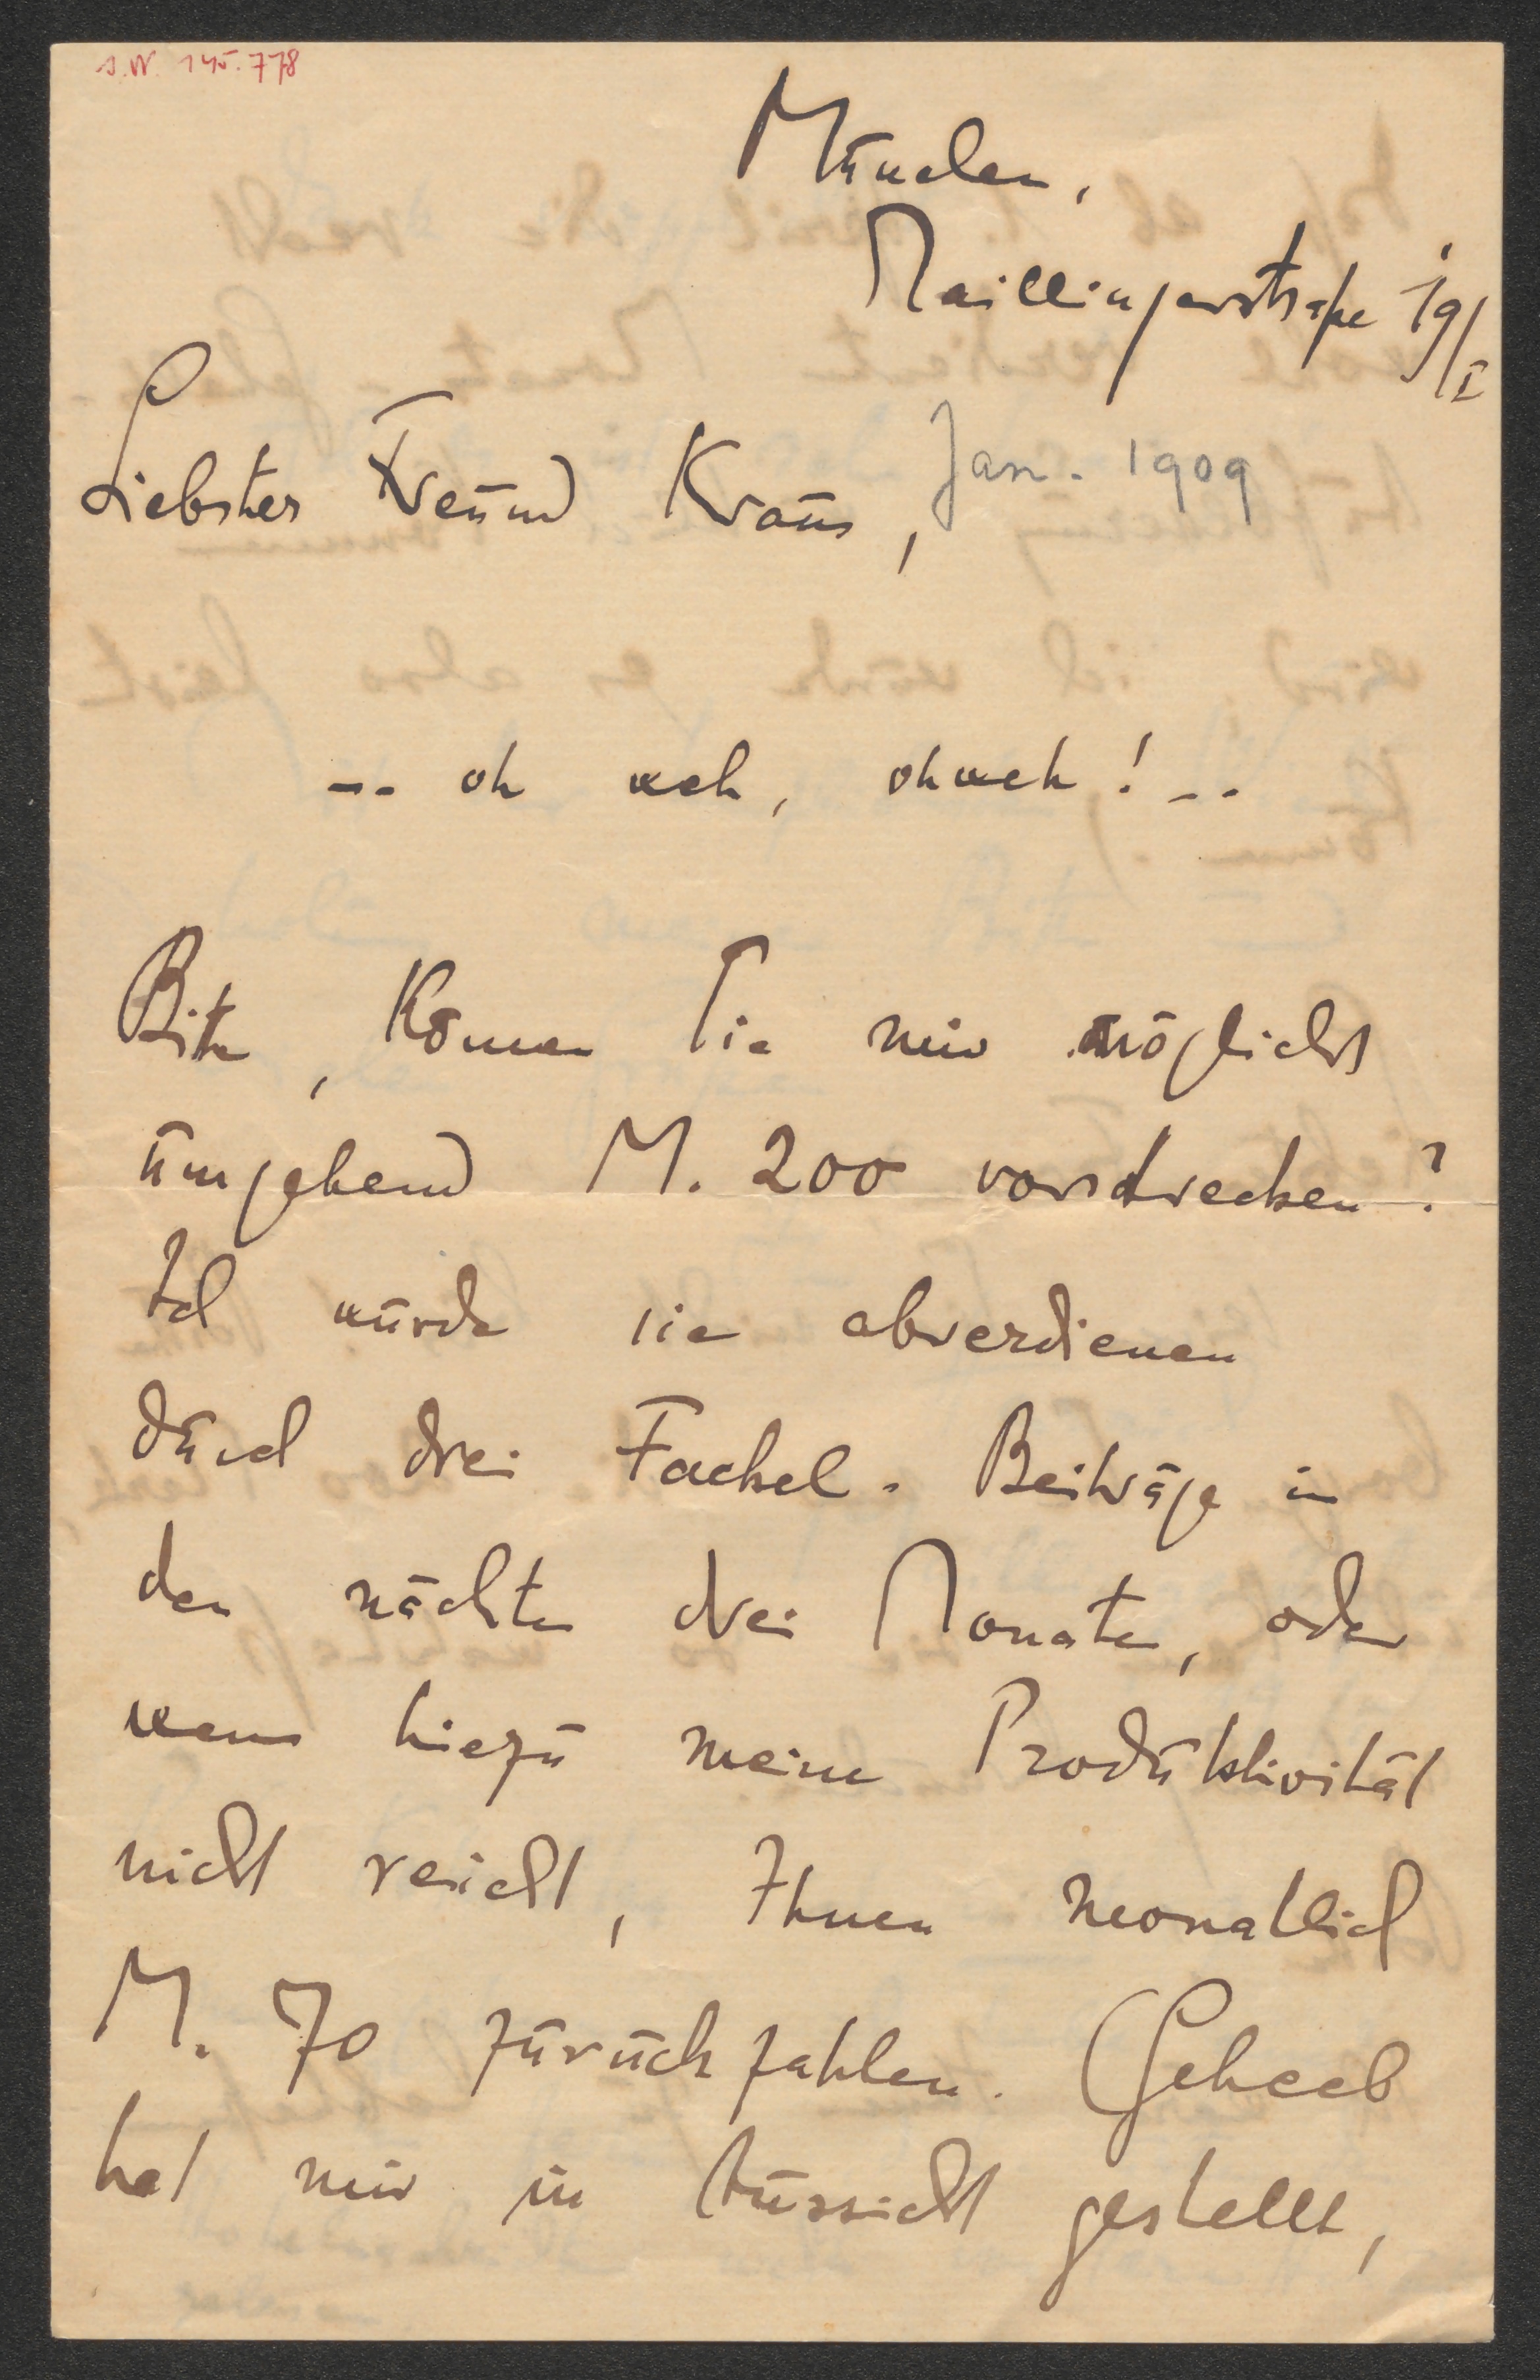 I.N. 145.778
München,
Maillingerstraße 19/I
Liebster Freund Kraus,
Jan. 1909
-- oh weh, ohweh! --
Bitte, können Sie mir möglichst
umgehend M. 200 vorstrecken?
Ich würde sie abverdienen
durch drei Fackel-Beiträge in
den nächsten drei Monaten, oder
wenn hiezu meine Produktivität
nicht reicht, Ihnen monatlich
M. 70 zurückzahlen. (Geheeb
hat mir in Aussicht gestellt,